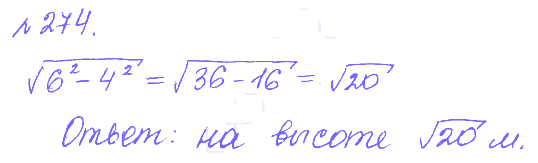 № 274.
√(6² - 4²) = √(36 - 16) = √20
Ответ: на высоте √20 м.